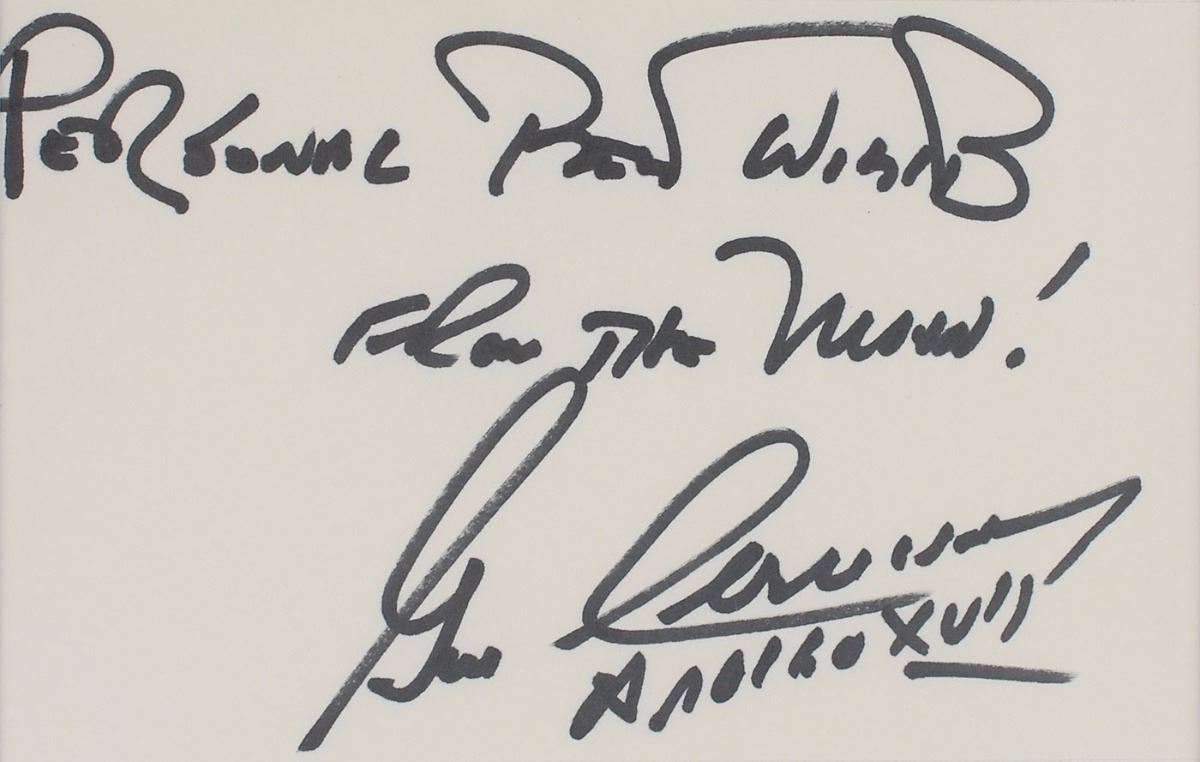 Personal Best Wishes
From The Moon!
Gene Cernan
Apollo XVII